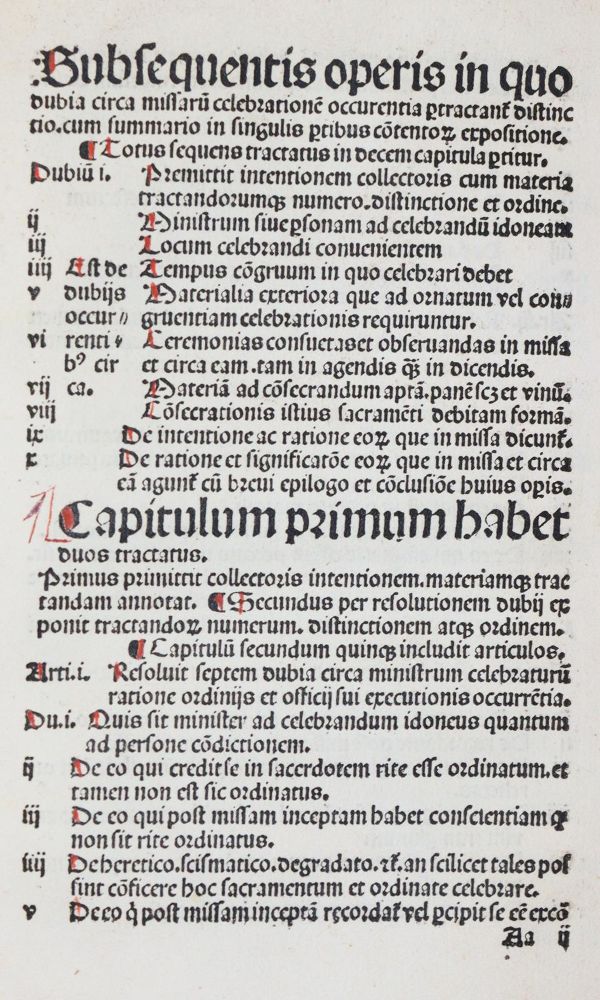 Subsequentis operis in quo
dubia circa missarū celebrationē occurentia ꝑtractant᷑ distinc
tio. cum summario in singulis ꝑtibus cōtentoꝝ expositione.
¶ Totus sequens tractatus in decem capitula ꝑtitur.
Dubiū i. Premittit intentionem collectoris cum materia
tractandorumqꝫ numero. distinctione et ordine.
ij Ministrum siue ꝑsonam ad celebrandū idoneam
iij Locum celebrandi conuenientem
iiij Est de Tempus cōgruum in quo celebrari debet
v dubijs Materialia exteriora que ad ornatum vel con⸗
occur⸗ gruentiam celebrationis requiruntur.
vi renti⸗ Ceremonias consuetas et obseruandas in missa
bꝰ cir et circa eam. tam in agendis qꝫ̄ in dicendis.
vij ca. Materiā ad cōsecrandum aptā. panē scꝫ et vinū.
viij Cōsecrationis istius sacramēti debitam formā.
ix De intentione ac ratione eoꝝ que in missa dicunt᷑.
x De ratione et significatōe eoꝝ que in missa et circa
eā agunt᷑ cū breui epilogo et cōclusiōe huius oꝑis.
Capitulum primum habet
duos tractatus.
Primus primittit collectoris intentionem. materiamqꝫ trac
tandam annotat. ¶ Secundus per resolutionem dubij ex
ponit tractandoꝝ numerum. distinctionem atqꝫ ordinem.
¶ Capitulū secundum quinqꝫ includit articulos.
Arti. i. Resoluit septem dubia circa ministrum celebraturū
ratione ordinijs et officij sui executionis occurrētia.
Du. i. Quis sit minister ad celebrandum idoneus quantum
ad persone cōdictionem.
ij De eo qui credit se in sacerdotem rite esse ordinatum. et
tamen non est sic ordinatus.
iij De eo qui post missam inceptam habet conscientiam ꝙ
non sit rite ordinatus.
iiij De heretico. scismatico. degradato. ⁊c̄. an scilicet tales pos
sint cōficere hoc sacramentum et ordinate celebrare.
v De eo q̇ post missam inceptā recordat᷑ vel ꝑcipit se eē excō
Aa ij